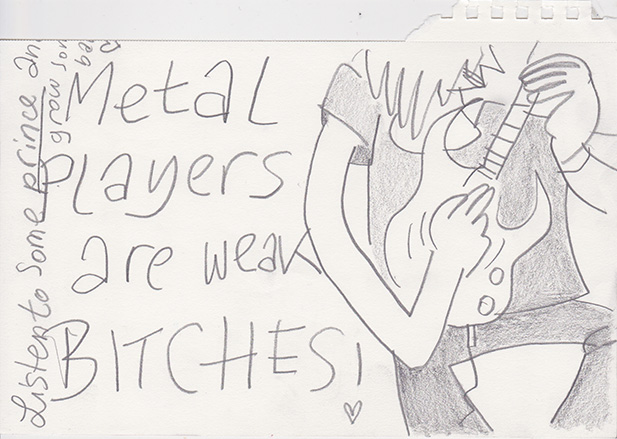 Metal
players
are weak
BITCHES!
Listen to some prince an
grow som